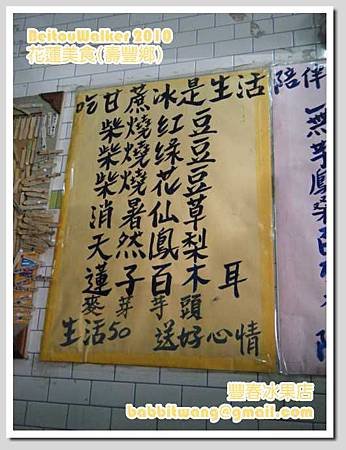 BeitouWalker 2010
花蓮美食(壽豐鄉)
吃甘蔗冰是生活
柴燒紅豆
柴燒綠豆
柴燒花豆
消暑仙草
天然鳳梨
蓮子百木耳
麥芽芋頭
生活50 送好心情
陪伴
無
芋
鳳
桑
百
豐春冰果店
babbitwang@gmail.com